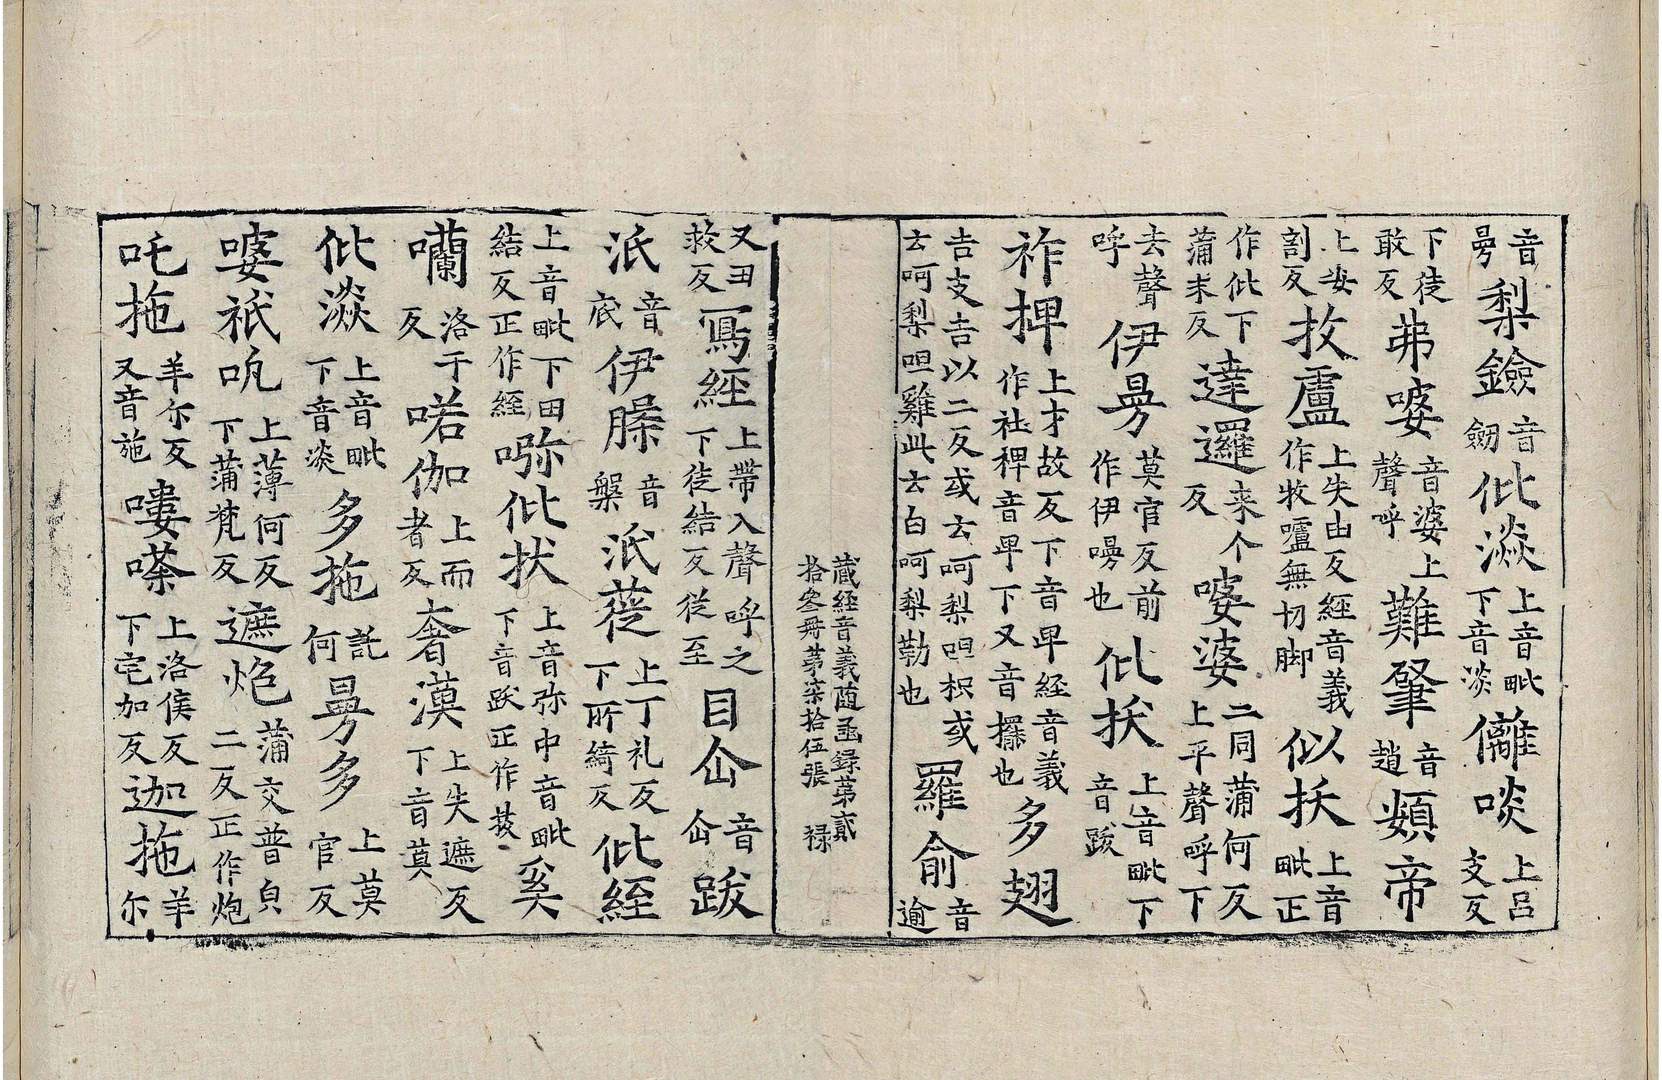 音㝵梨鐱音劒仳㴸上音毗下音淡儺啖上呂支反
下徒敢反弗㗑音婆上聲呼難肇音趙頞帝
上安割反抆盧上失由反經音義作牧嚧無切脚似扷上音毗正
作仳下蒲末反達邏来个反㗑婆二同蒲何反上平聲呼下
去聲呼伊㝵莫官反前作伊㬅也仳扷上音毗下音跋
祚捭上才故反下音卑經音義作社稗音卑下又音擺也多翅
吉支吉以二反或云呵梨呾枳或云呵梨呾雞此云白呵梨勒也羅俞音逾
藏經音義随函録苐貳
拾叁冊苐柒拾伍張 禄
又田救反寫經上帶入聲呼之下徒結反従至目㕣音㕣跋
汦音底伊䐒音槃汦蓰上丁礼反下所綺反仳絰
上音毗下田結反正作絰㘑仳状上音弥中音毗下音跋正作拔奚
囒洛干反喏伽上而者反奢漠上失遮反下音莫
仳㴸上音毗下音淡多拖託何㝵多上莫官反
㗑祇吭上薄何反下蒲梵反遮炮蒲交普皃二反正作炮
吒拖羊尒反又音施嘍㗬上洛侯反下宅加反迦拖羊尒